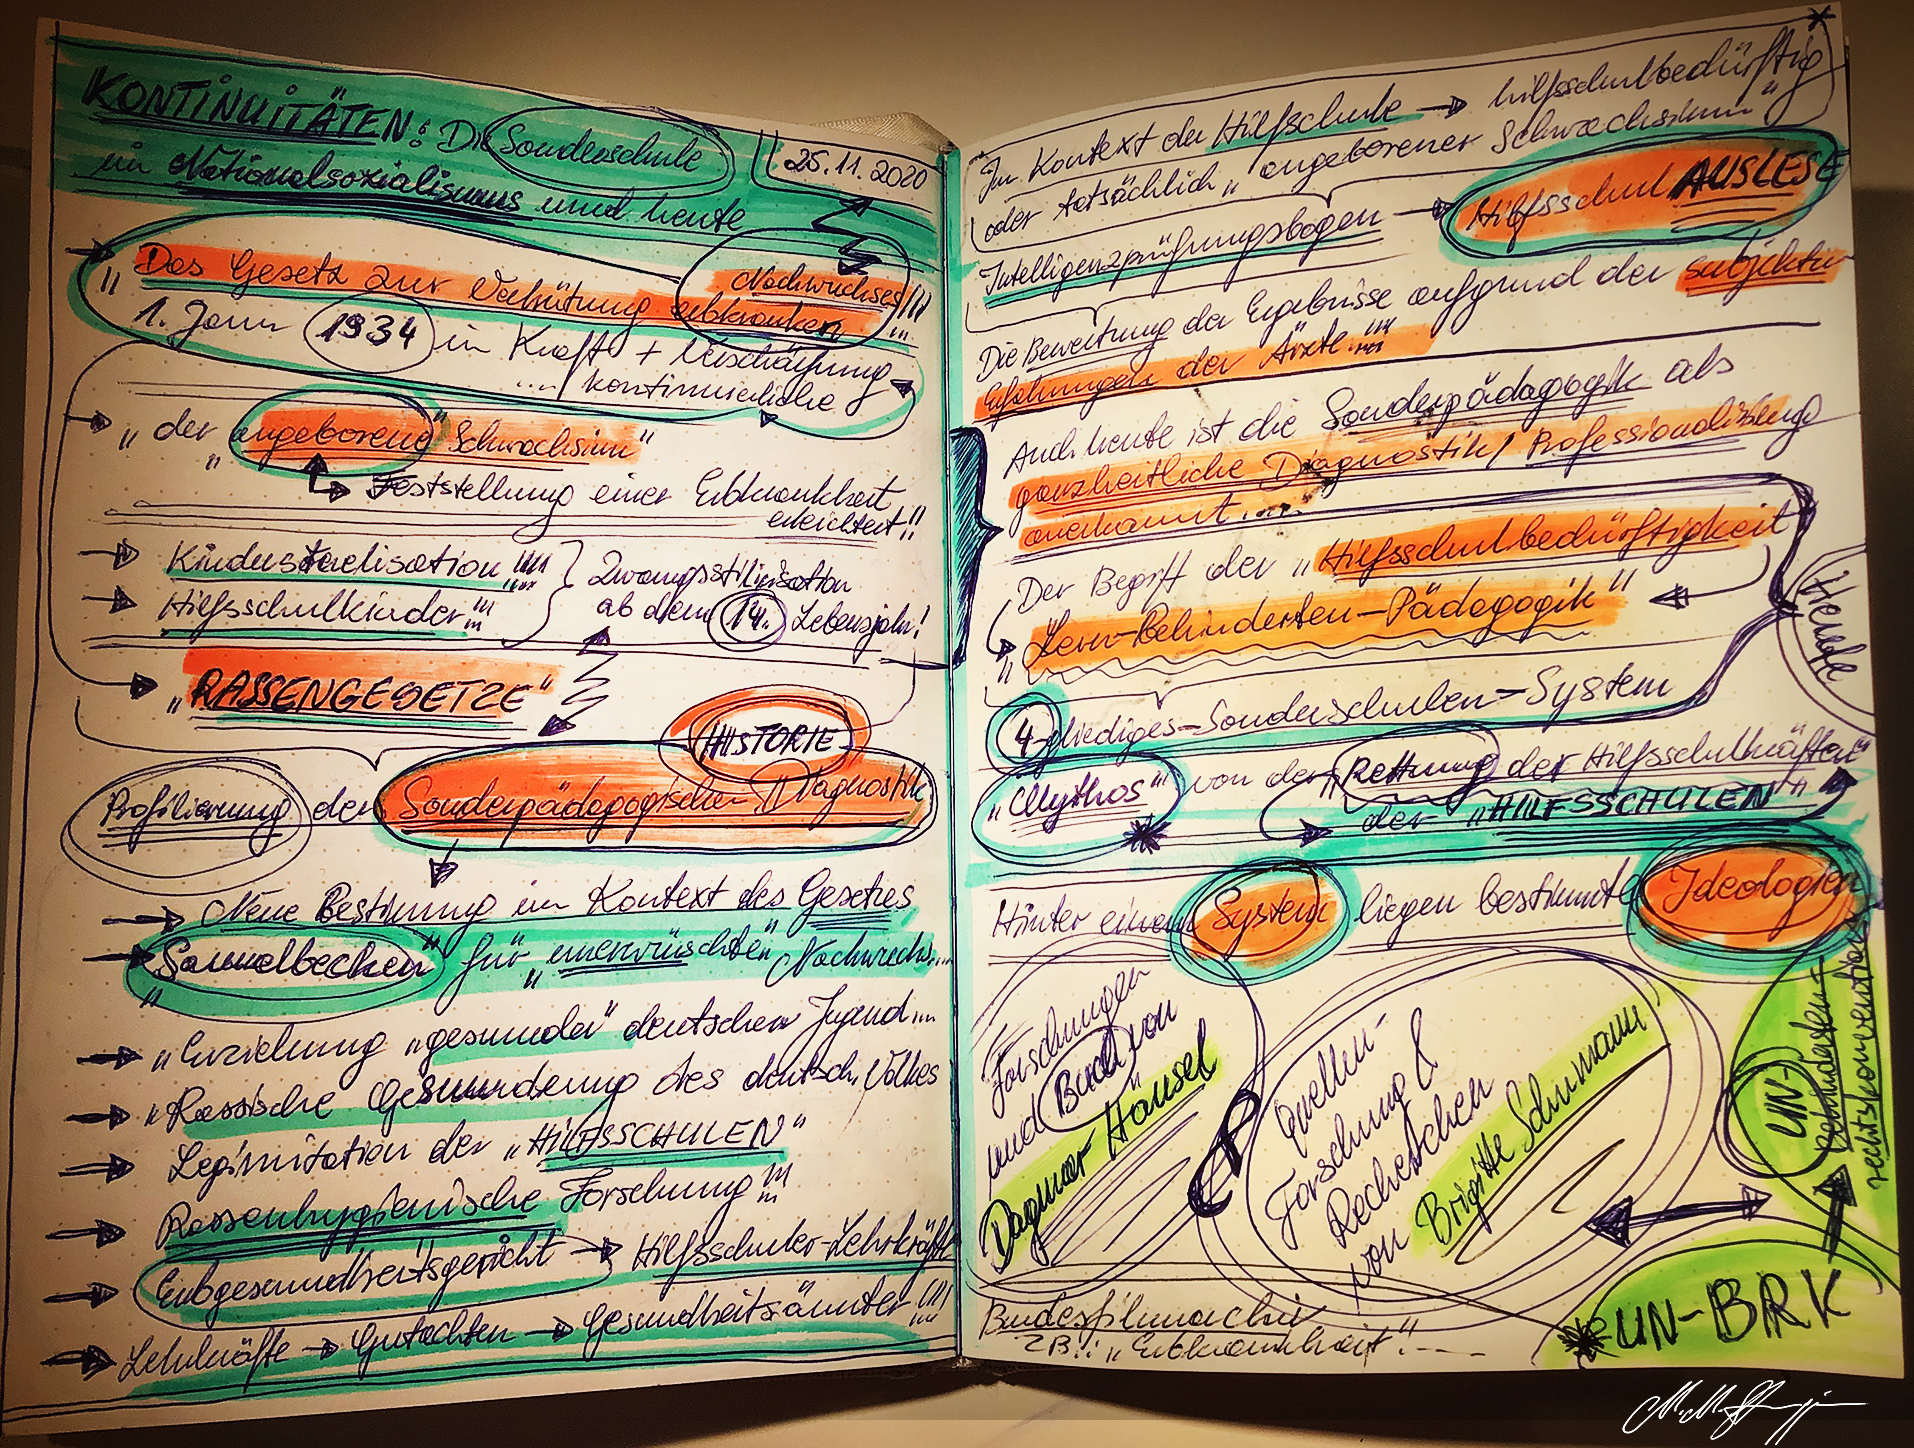 KONTINUITÄTEN: Die Sonderschule
im Nationalsozialismus und heute
25.11.2020
"Das Gesetz zur Verhütung erbkranken
Nachwuchses"!!!
1. Jann 1934 in Kraft + Verschärfung
.... kontinuierliche
"der "angeborene" Schwachsinn"
Feststellung einer Erbkrankheit
erleichtert!!
Kindersterelisation!!!!
Hilfsschulkinder!!!
Zwangsstilisation
ab dem 14. Lebensjahr!
"RASSENGESETZE"
HISTORIE
Profilierung der Sonderpädagogischen Diagnostik
Neue Bestimung im Kontext des Gesetzes
"Sammelbecken" für "unerwüschten" Nachwuchs...
"Erziehung "gesunder" deutschen Jugend....
"Rassische Gesundung des deutsch. Volkes
Legimitation der "HILFSSCHULEN"
Rassenhygienische Forschung!!!
Erbgesundheitsgericht → Hilfsschuler-Lehrkräfte
Lehrkräfte → Gutachten → Gesundheitsämter!!!!
Im Kontext der Hilfschule → hilfsschulbedürftig
oder tatsächlich "angeborener Schwachsinn"
Intelligenzprüfungsbogen → Hilfsschul AUSLESE
Die Bewertung der Ergebnisse aufgrund der subjektiv
Erfahrungen der Ärzte!!!
Auch heute ist die Sonderpädagogik als
ganzheitliche Diagnostik/Professionalisierung
anerkannt....
Der Begriff der "Hilfsschulbedürftigkeit
"Lern-Behinderten-Pädagogik"
Heute
4-gliediges-Sonderschulen-System
"Mythos" von der "Rettung der Hilfsschulkräften"
der "HILFSSCHULEN"
Hinter einem System liegen bestimmte Ideologien
Forschungen
und Buch von
Dagmar Hänsel
Quellen-
Forschung &
Recherchen
von Brigitte Schumann
UN-
Behinderten-
rechtskonvention
UN-BRK
Bundesfilmarchiv
z.B.: "Erbkrankheit"....